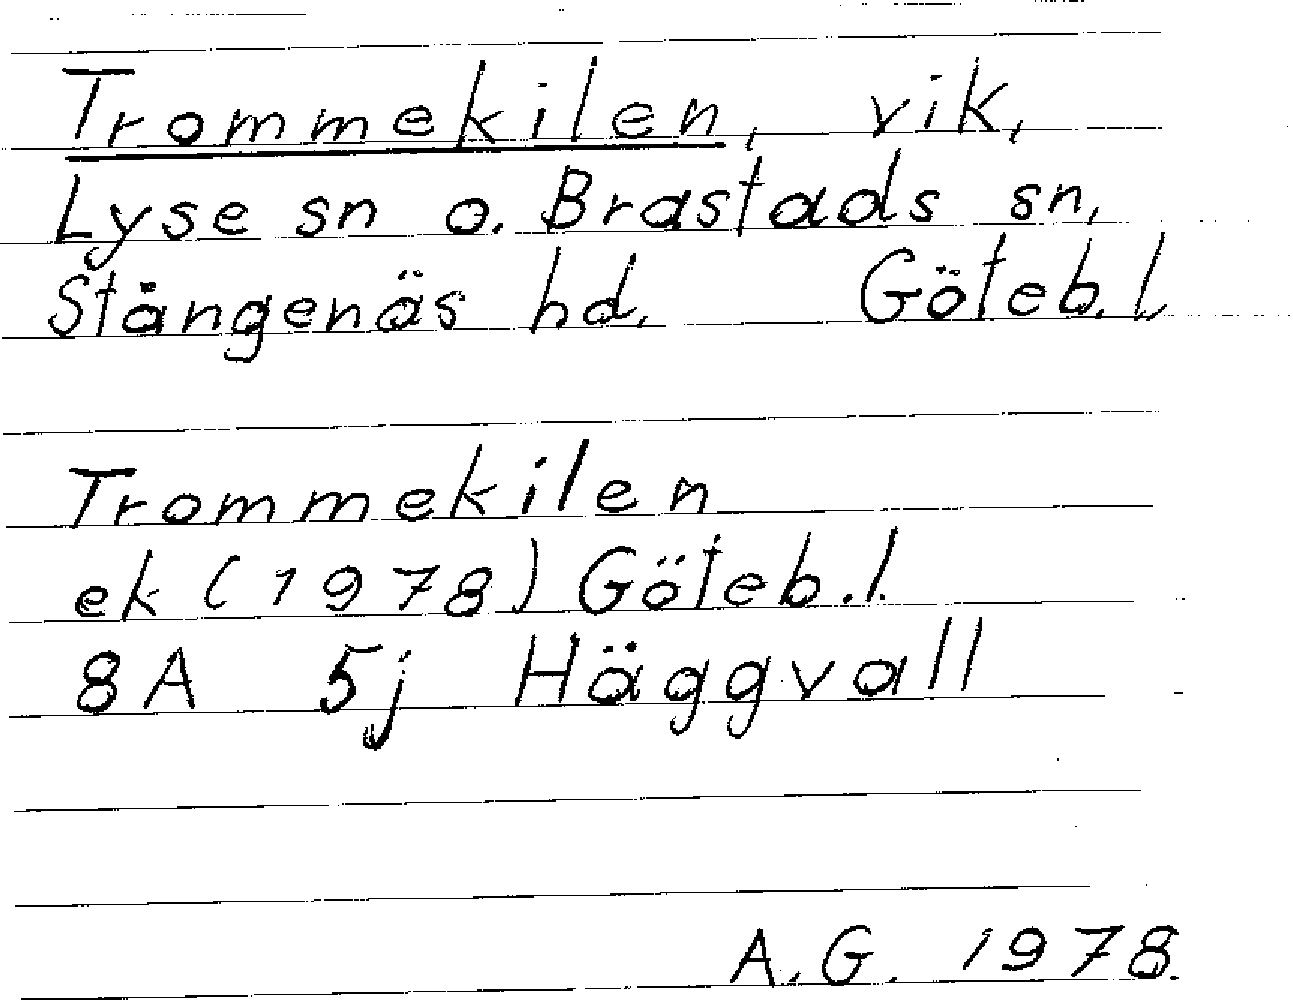 Trommekilen, vik,
Lyse sn o. Brastads sn,
Stångenäs hd, Göteb. l.
Trommekilen
ek (1978) Göteb. l.
8A 5j Häggvall
A. G. 1978.